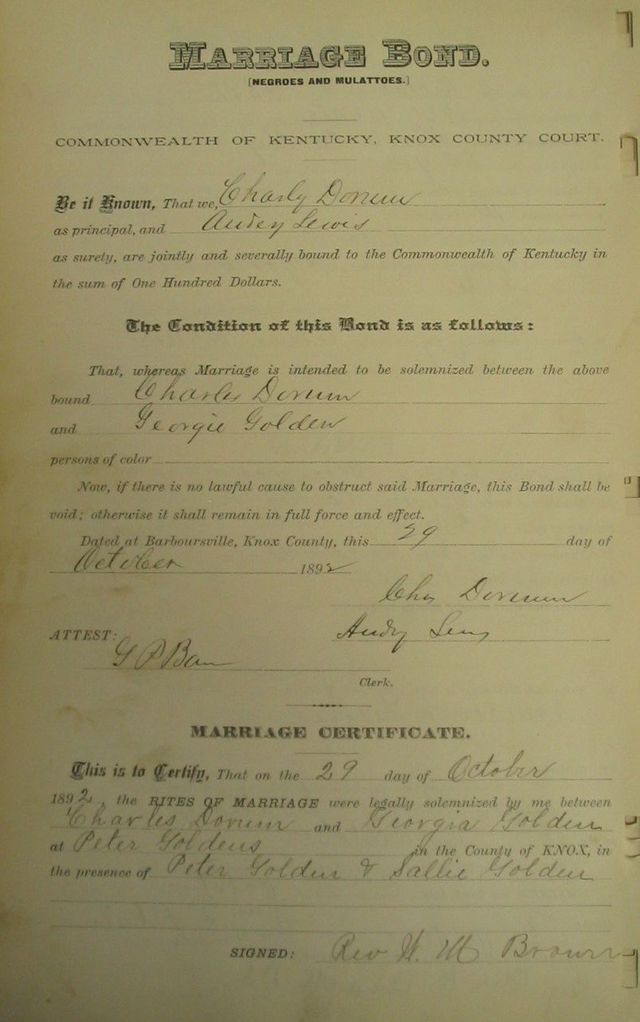 MARRIAGE BOND.
[NEGROES AND MULATTOES.]
COMMONWEALTH OF KENTUCKY, KNOX COUNTY COURT.
Be it Known, That we, Charly Dorum
as principal, and Andey Lewis
as surety, are jointly and severally bound to the Commonwealth of Kentucky in
the sum of One Hundred Dollars.
The Condition of this Bond is as follows:
That, whereas Marriage is intended to be solemnized between the above
bound Charles Dorum
and Georgie Golden
persons of color
Now, if there is no lawful cause to obstruct said Marriage, this Bond shall be
void; otherwise it shall remain in full force and effect.
Dated at Barboursville, Knox County, this 29 day of
October 1892
Chas Dorum
ATTEST: Andy
G P
Clerk.
MARRIAGE CERTIFICATE.
This is to Certify, That on the 29 day of October
1892, the RITES OF MARRIAGE were legally solemnized by me between
Charles Dorum and Georgia Golden
at Peter Goldens in the County of KNOX, in
the presence of Peter Golden & Sallie Golden
SIGNED: Rev W. M Brown